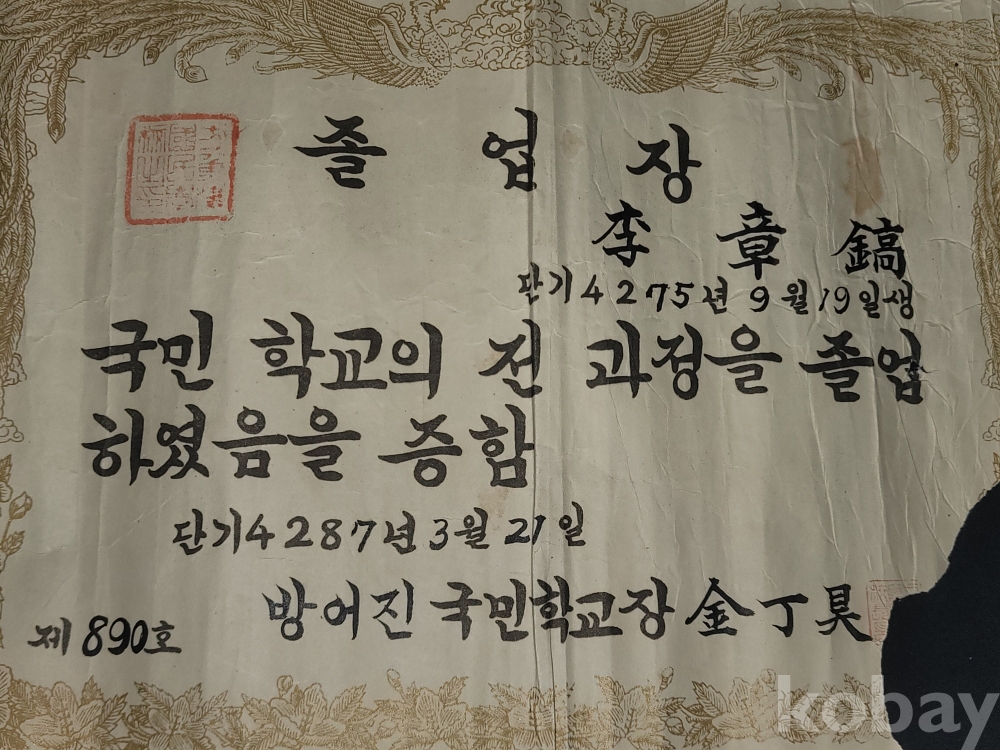 졸 업 장
李 章 鎬
단기 4275년 9월 19일생
국민 학교의 전 과정을 졸업
하였음을 증함
단기 4287년 3월 21일
방어진 국민학교장 金丁昊
제 890호
kobay